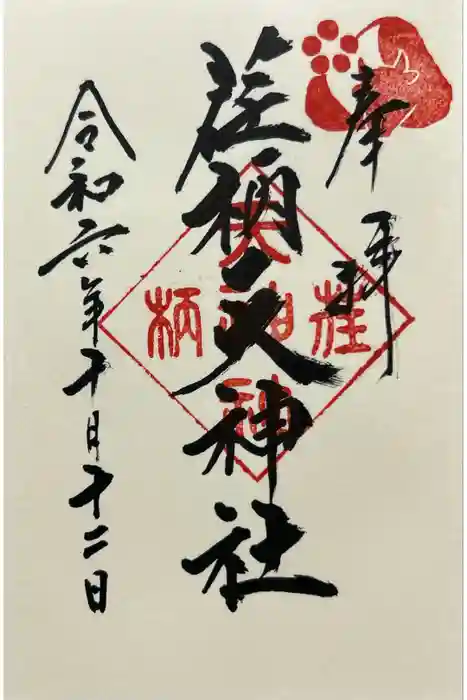 奉拝
荏柄天神社
令和六年十月十二日
荏柄天神社